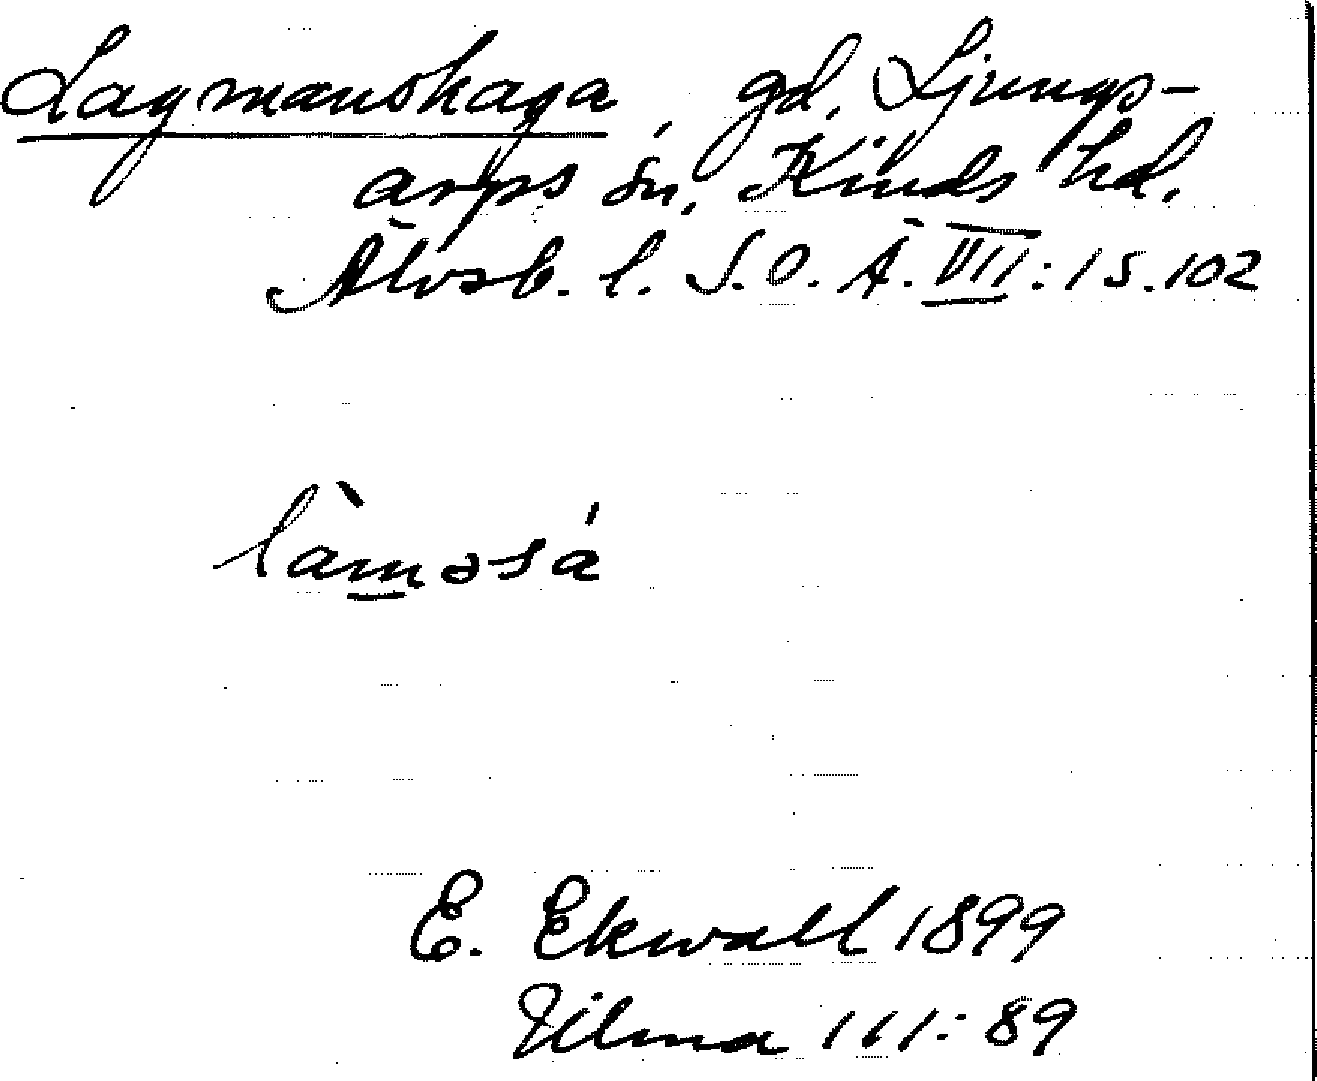 Lagmanshaga, gd, Ljungs-
arps sn, Kinds hd.
Älvsb. l. S.O.Ä. VII:1 S.102
làmǝsá
E. Ekwall 1899
Vilma III:89